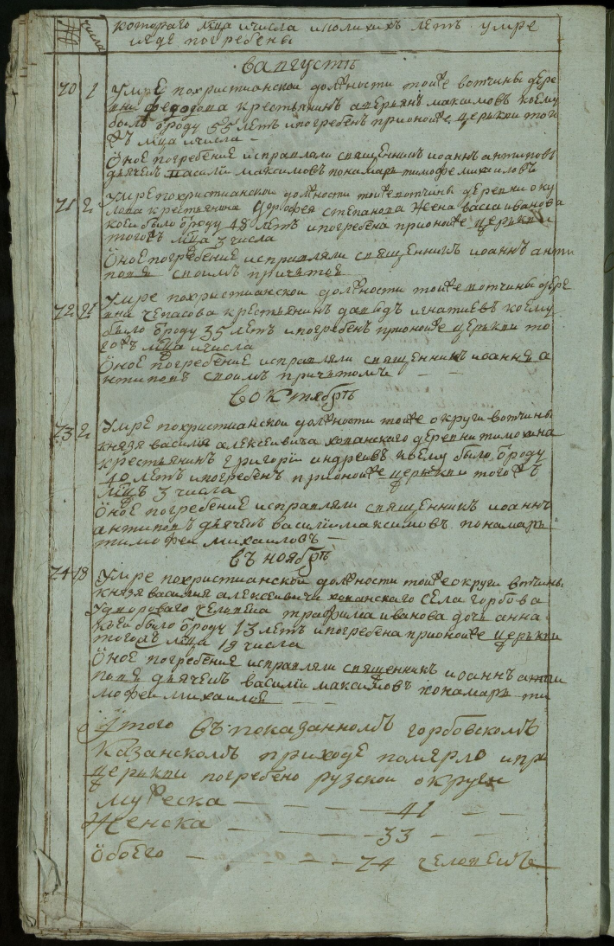 № числа котораго мѣца и числа и коликихъ лѣтъ умре
и где погребены
в августѣ
70 1 Умре похристианской должности тоиже вотчины дере
вни Федоова крестьянинъ аверьянъ максимовъ коему
былъ вроду 65 лѣтъ и погребенъ при оноиже церькви тог
ожъ мѣца числа
Оное погребение исправляли священникъ иоаннъ антиповъ
дьячекъ василий максимовъ понамарь тимофеи михаиловъ
71 2 Умре похристианской должности тоиже вотчины деревни оку
лова крестьянина Дорофея степанова жена васса иванова
коей было вроду 48 лѣтъ и погребена при оноиже церькви
тогожъ мѣца 3 числа
Оное погребение исправляли священникъ иоаннъ анти
повъ своимъ причетомъ
72 21 Умре похристианской должности тоиже вотчины дере
вни крестьянинъ давыдъ игнатиевъ коему
было вроду 35 лѣтъ и погребенъ при оноиже церькви то
гожъ мѣца и числа
Оное погребение исправляли священникъ иоаннъ а
нтиповъ своимъ причетомъ
в октябрѣ
73 2 Умре похристианской должности тоиже округи вотчины
князя василия алексѣевича хованскаго деревни тимохина
крестьянинъ григорий андреевъ коему было вроду
40 лѣтъ и погребенъ при оноиже церькви тогожъ
мѣца 3 числа
Оное погребение исправляли священникъ иоаннъ
антиповъ дьячекъ василий максимовъ понамарь
тимофеи михаиловъ
въ ноябрѣ
74 18 Умре похристианской должности тоиже округи вотчины
князя василия алексѣевича хованскаго села горбова
дворовaго человека трофима иванова дочь анна
коей было вроду 13 лѣтъ и погребена при оноиже церькви
тогожъ мѣца 19 числа
Оное погребение исправляли священникъ иоаннъ анти
повъ дьячекъ василий максимовъ понамарь ти
мофеи михаиловъ
Итого въ показанномъ горбовскомъ
казанскомъ приходе померло и при
церькви погребено рузской округи
мужеска — 41
Женска — 33
Обоего — 74 человекъ